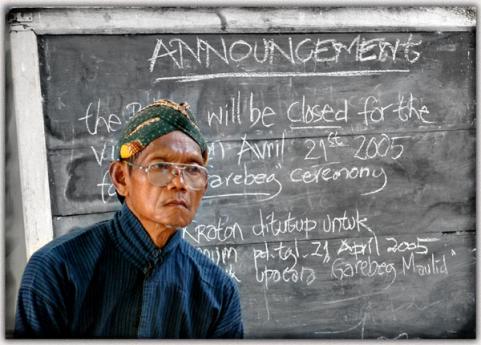 ANNOUNCEMENT
the will be closed for the
Avril 21st 2005
Garebeg ceremony
Kraton ditutup untuk
pd. tgl. 21 April 2005
upacara Garebeg Maulid